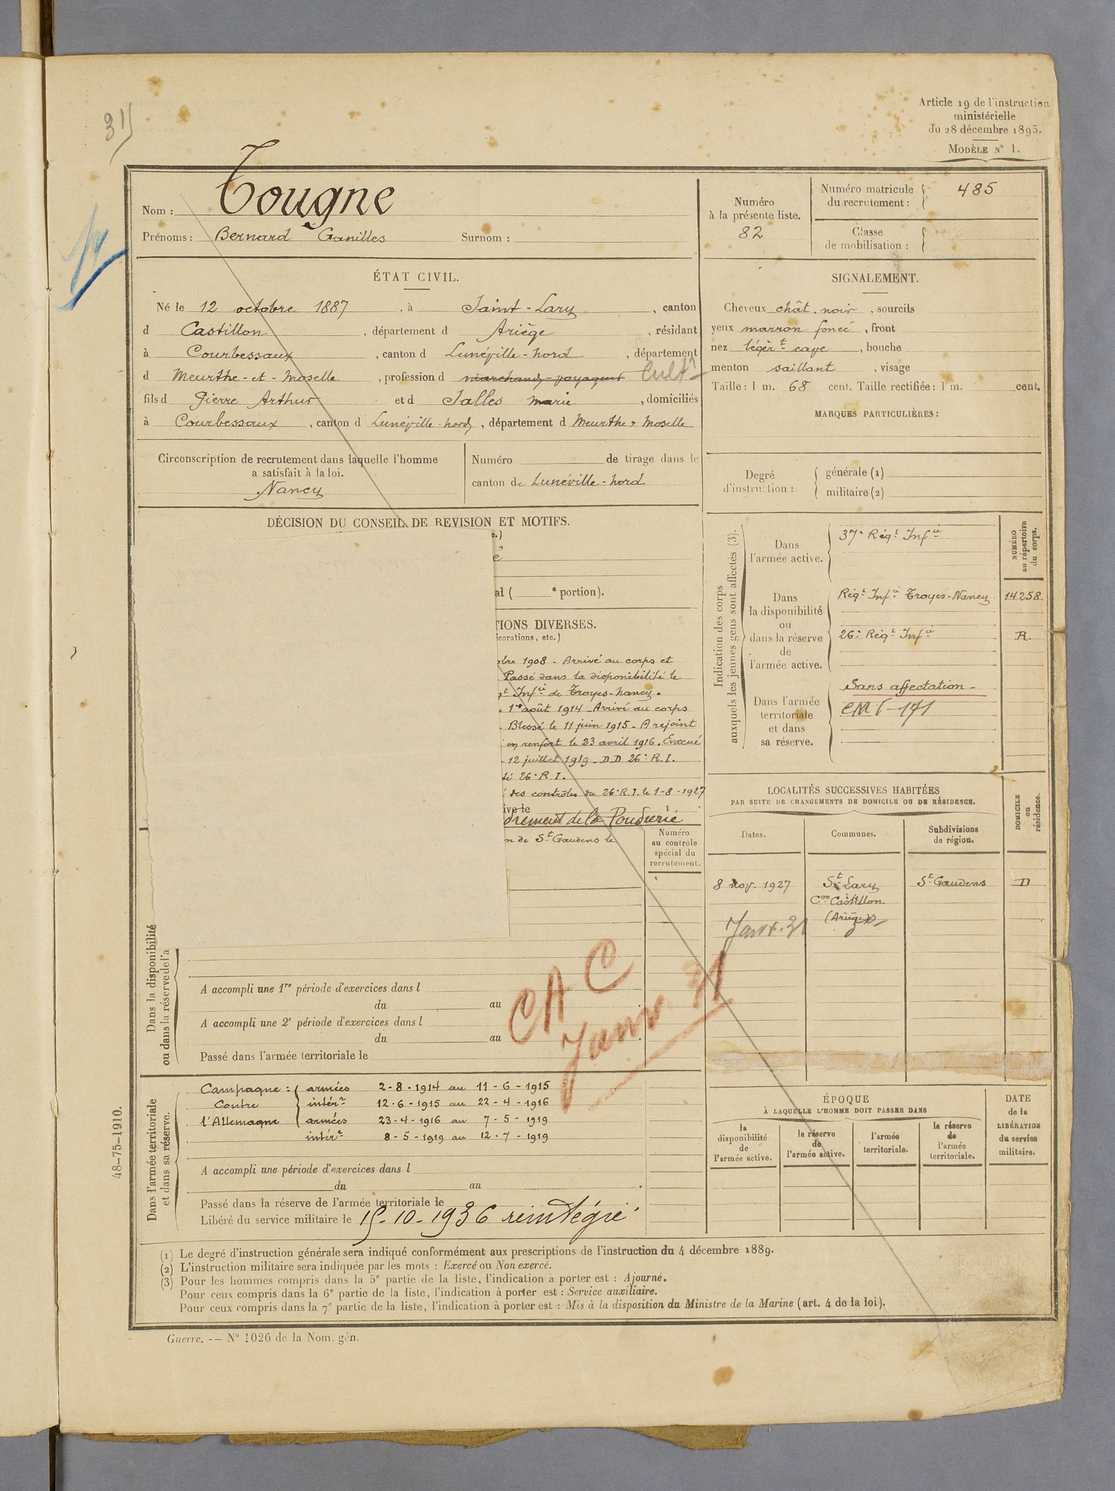 31)
Article 19 de l'instruction
ministérielle
du 28 décembre 1895.
MODÈLE N° 1.
Nom : Tougne
Prénoms : Bernard Ganilles Surnom :
Numéro
à la présente liste.
82
Numéro matricule
du recrutement : 485
Classe
de mobilisation :
ÉTAT CIVIL.
Né le 12 octobre 1887, à Saint-Lary, canton
d Castillon, département d Ariège, résidant
à Courbessaux, canton d Lunéville-nord, département
d Meurthe-et-Moselle, profession d marchand-voyageur Cultr
fils d Pierre Arthur et d Salles Marie, domiciliés
à Courbessaux, canton d Lunéville-nord, département d Meurthe & Moselle
SIGNALEMENT.
Cheveux chât. noir, sourcils
yeux marron foncé, front
nez légèrt cave, bouche
menton saillant, visage
Taille : 1 m. 68 cent. Taille rectifiée : 1 m. cent.
MARQUES PARTICULIÈRES :
Circonscription de recrutement dans laquelle l'homme
a satisfait à la loi.
Nancy
Numéro de tirage dans le
canton de Lunéville-nord
Degré
d'instruction :
générale (1)
militaire (2)
DÉCISION DU CONSEIL DE REVISION ET MOTIFS.
al ( e portion).
TIONS DIVERSES.
écorations, etc.)
obre 1908 - Arrivé au corps et
Passé dans la disponibilité le
gt Infie de Troyes-Nancy.
1er août 1914 - Arrivé au corps
Blessé le 11 juin 1915 - A rejoint
en renfort le 23 avril 1916. Evacué
12 juillet 1919 - DD 26e R.I.
26e R.I.
des contrôles du 26e R.I. le 1-8-1927
ive le
drement de la Poudrerie
n de St Gaudens le
Numéro
au contrôle
spécial du
recrutement.
Indication des corps
auxquels les jeunes gens sont affectés (3).
Dans
l'armée active.
37e Régt Infie
Dans
la disponibilité
ou
dans la réserve
de
l'armée active.
Régt Infie Troyes-Nancy
26e Régt Infie
Dans l'armée
territoriale
et dans
sa réserve.
Sans affectation -
NUMÉRO
au répertoire
du corps.
14258
R.
LOCALITÉS SUCCESSIVES HABITÉES
PAR SUITE DE CHANGEMENTS DE DOMICILE OU DE RÉSIDENCE.
DOMICILE
ou
résidence.
Dates.
Communes.
Subdivisions
de région.
8 nov. 1927
St Lary
Con Castillon
(Ariège)
St Gaudens
D
Janv. 31
Dans la disponibilité
ou dans la réserve de l'a
A accompli une 1re période d'exercices dans l
du au
A accompli une 2e période d'exercices dans l
du au
Passé dans l'armée territoriale le
CAC
Janv. 31
Dans l'armée territoriale
et dans sa réserve.
Campagne : armées 2-8-1914 au 11-6-1915
Contre intérr 12-6-1915 au 22-4-1916
l'Allemagne armées 23-4-1916 au 7-5-1919
intérr 8-5-1919 au 12-7-1919
A accompli une période d'exercices dans l
du au
Passé dans la réserve de l'armée territoriale le
Libéré du service militaire le 15-10-1936 réintégré
ÉPOQUE
À LAQUELLE L'HOMME DOIT PASSER DANS
la
disponibilité
de
l'armée active.
la réserve
de
l'armée active.
l'armée
territoriale.
la réserve
de
l'armée
territoriale.
DATE
de la
LIBÉRATION
du service
militaire.
48-75-1910.
(1) Le degré d'instruction générale sera indiqué conformément aux prescriptions de l'instruction du 4 décembre 1889.
(2) L'instruction militaire sera indiquée par les mots : Exercé ou Non exercé.
(3) Pour les hommes compris dans la 5e partie de la liste, l'indication à porter est : Ajourné.
Pour ceux compris dans la 6e partie de la liste, l'indication à porter est : Service auxiliaire.
Pour ceux compris dans la 7e partie de la liste, l'indication à porter est : Mis à la disposition du Ministre de la Marine (art. 4 de la loi).
Guerre. -- N° 1026 de la Nom. gén.